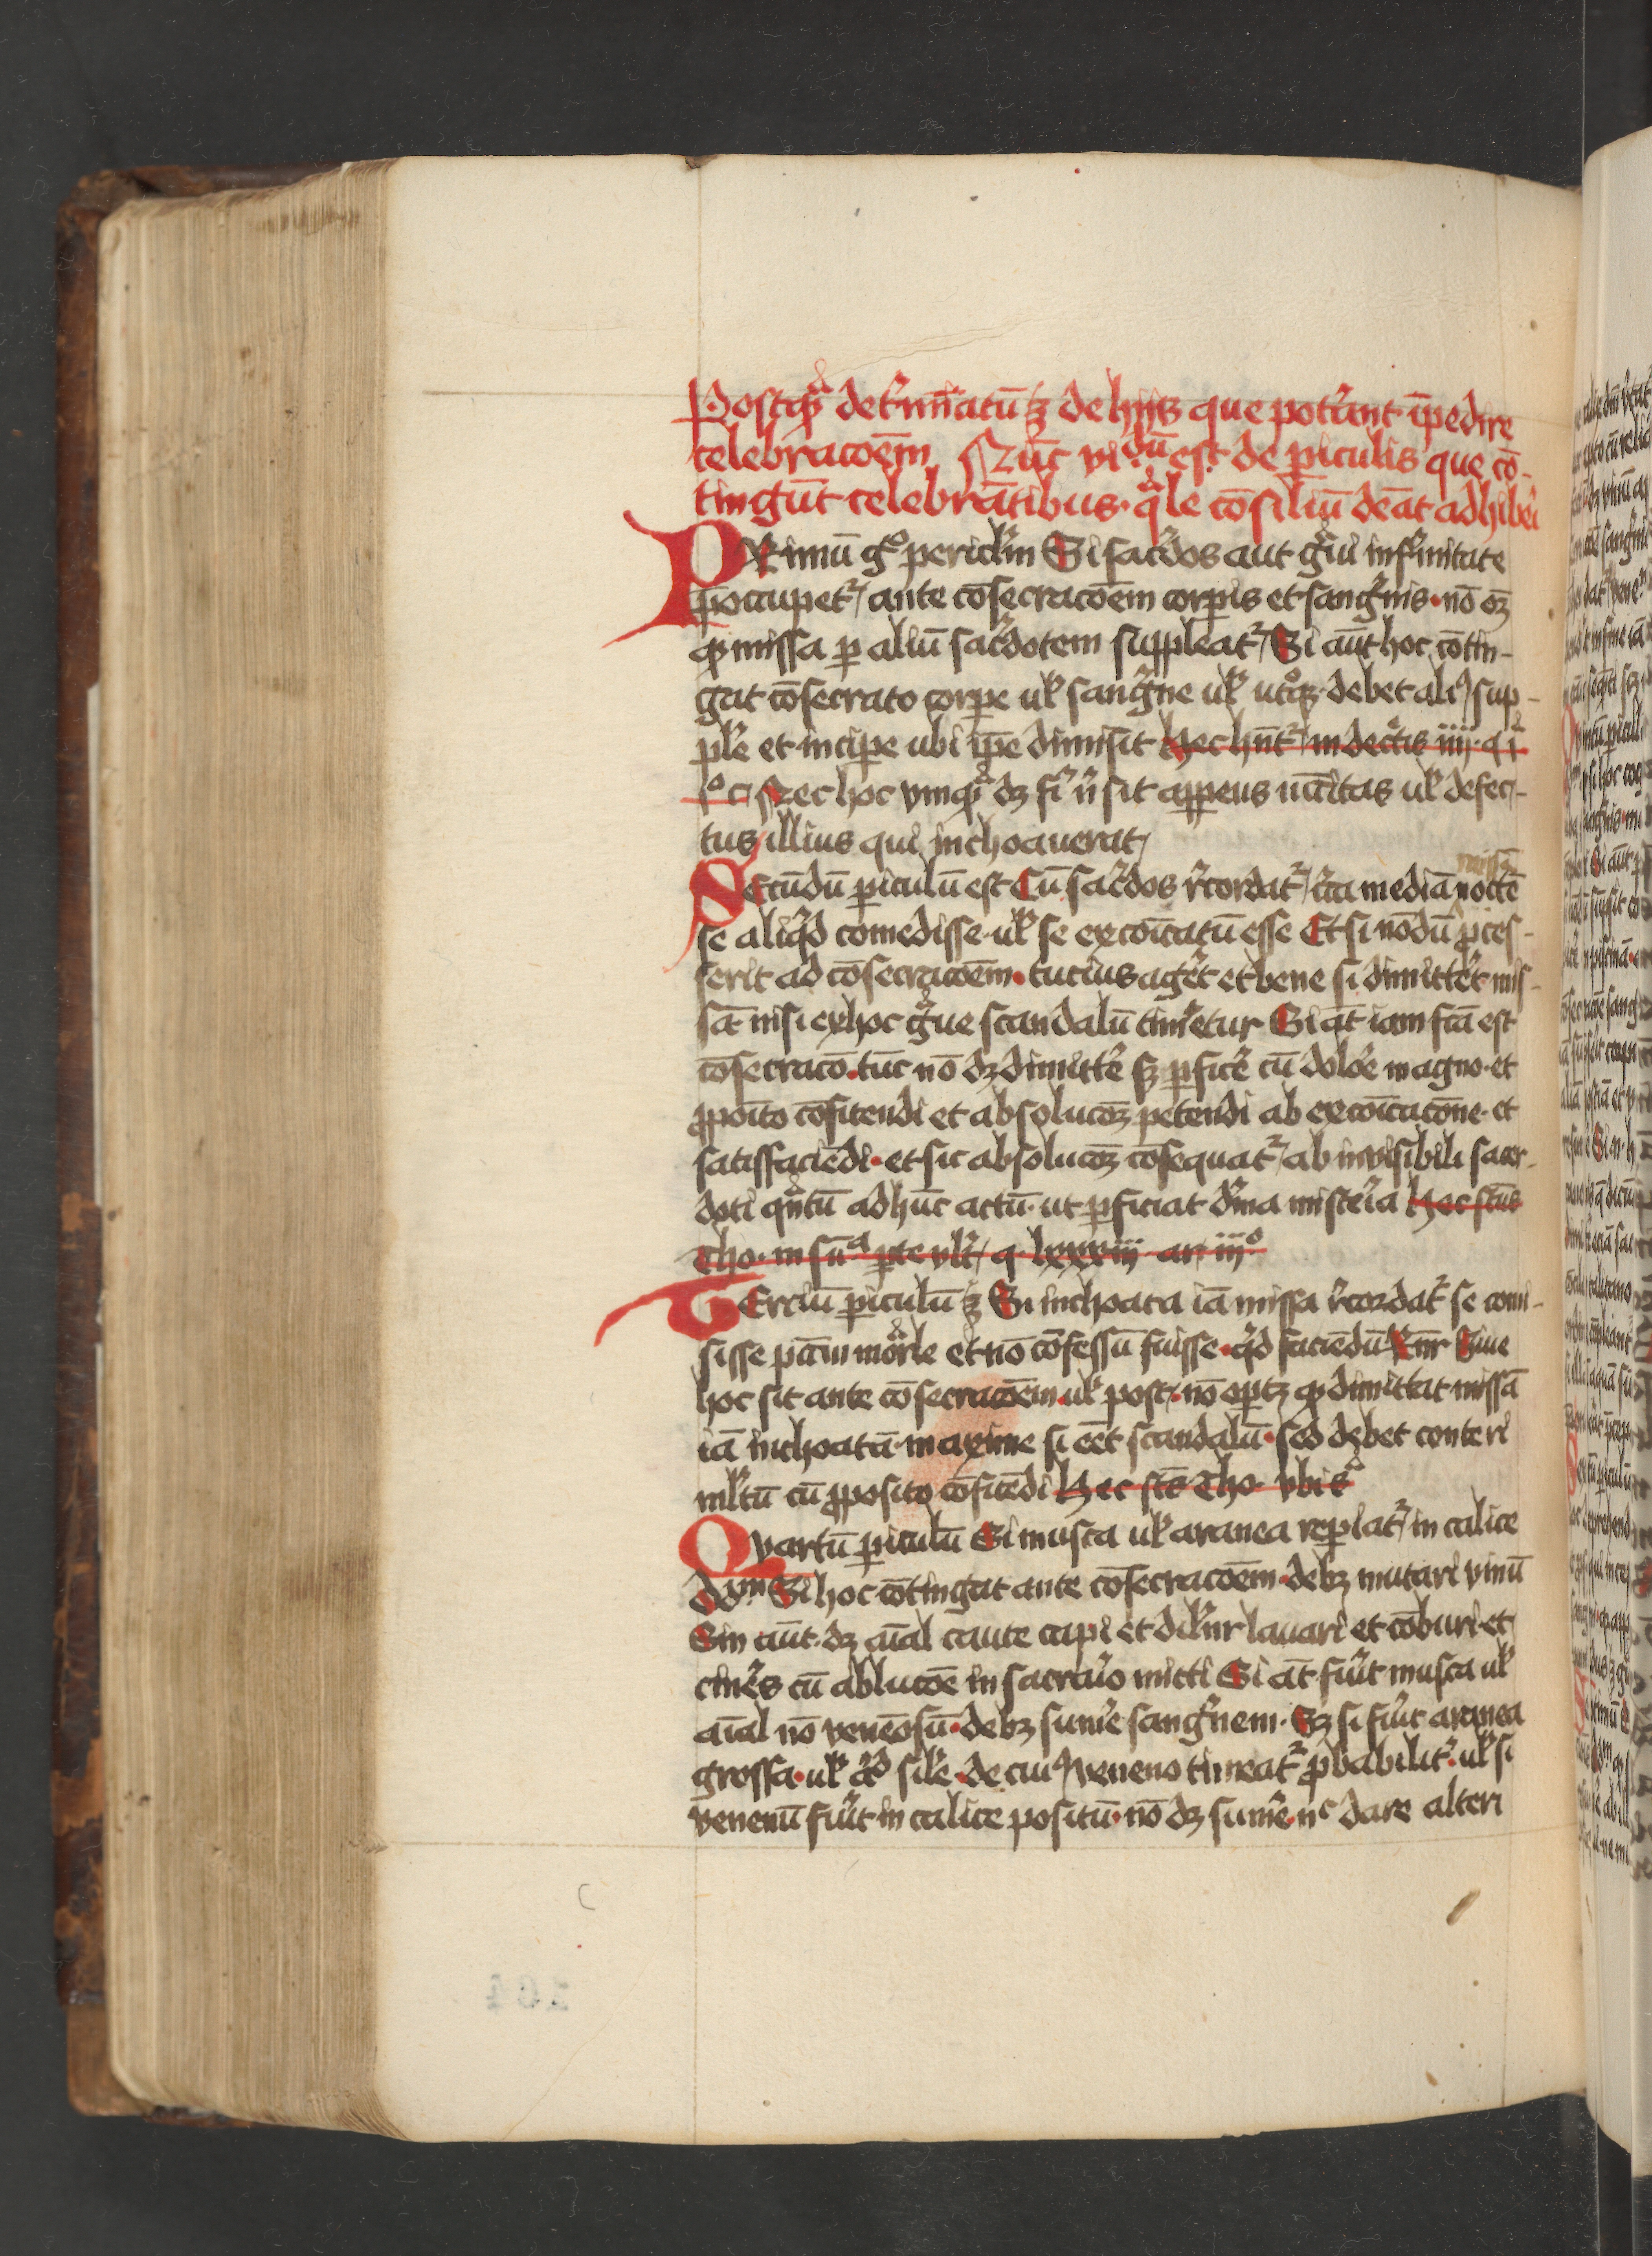 Postq̄ᵃ det̾mīatū ꝫ de hijs que pot̾ant īpedire
celebracōem Nūc vidᵈū est de ꝑiculis que cō-
tingūt celebrātibus · q̄ᵃle cōsiliū dēat adhib̾i
PRimū gͦ pericl̾m Si sac̾dos aut g̾ui infirmitate
p̄occupet̾ ante cōsecracōem corꝑis et sanguīs · nō oꝫ
ꝙ missa ꝑ aliū sac̾dotem suppleat̾ Si aūt hoc cōtin-
gat cōsecrato corꝑe ul̾ sangⁱne ul̾ utͦqꝫ · debet aliꝰ sup-
pl̾e et incipe ubi ip̄e dimisit Hec hn̄t̾ in dec̾tis iiij · q i
Nec hoc vnqᵃ dꝫ fi̾ n̾ sit appens īfi̾itas ul̾ defec-
tus illius qui inchoauerat
SEcūdū ꝑiculū est Cū sac̾dos r̾cordat̾ c̾ca mediā noctē
se aliqⁱd comedisse · ul̾ se excōicatū esse Et si nōdū ꝓces-
serit ad cōsecracōem · tucius ager̾t et bene si dimitter̾t mis-
sā nisi ex hoc g̾ue scandalū tim̾etur Si āt iam fc̄a est
cōsecracō · tūc nō dꝫ dimitte̾ sꝫ ꝑfice̾ cū dolo̾e magno · et
ꝓpoīto cōfitendi et absolucōꝫ petendi ab excōicacōne · et
satisfaciēdi · et sic absolucōꝫ cōsequat̾ ab invisibili sacer-
doti qᵃntū ad hūc actū · ut ꝑficiat diuina misteria Hec sc̄us
Tho · in sūᵃ ꝑte vlt̾ q · lxxxiij ar iijͦ
TErciū ꝑiculū ꝫ Si inchoata iā missa r̾cordat̾ se comi-
sisse pc̄m morᵃle et nō cōfessū fuisse · qⁱd faciēdū Rn̄r Siue
hoc sit ante cōsecracōem · ul̾ post · nō oportꝫ ꝙ dimittat missā
iā inchoatā · maxime si eēt scandalū · sed debet conteri
ml̾tū cū ꝓposito cōfitēdi Hec sc̄s Tho vbi sᵃ
QVartū ꝑiculū Si musca ul̾ aranea reꝑiat̾ in calice
dōᵐ Si hoc cōtingat ante cōsecracōem · debꝫ mutari vinū
Sin aūt · dꝫ aīal caute capi et dil̾nr̄ lavari et cōburi · et
cine̾s cū ablucōe in sacra̾io mitti Si āt fuit̾ musca ul̾
aīal nō venenōsū · debꝫ sume̾ sangⁱnem · Sꝫ si fuit̾ aranea
grossa · ul̾ aⁱd sil̾e · de cuiꝰ veneno timeat̾ ꝓbabilit̾ ul̾ si
venenū fuit̾ in calice positū · nō dꝫ sume̾ · nᶜ dare alteri